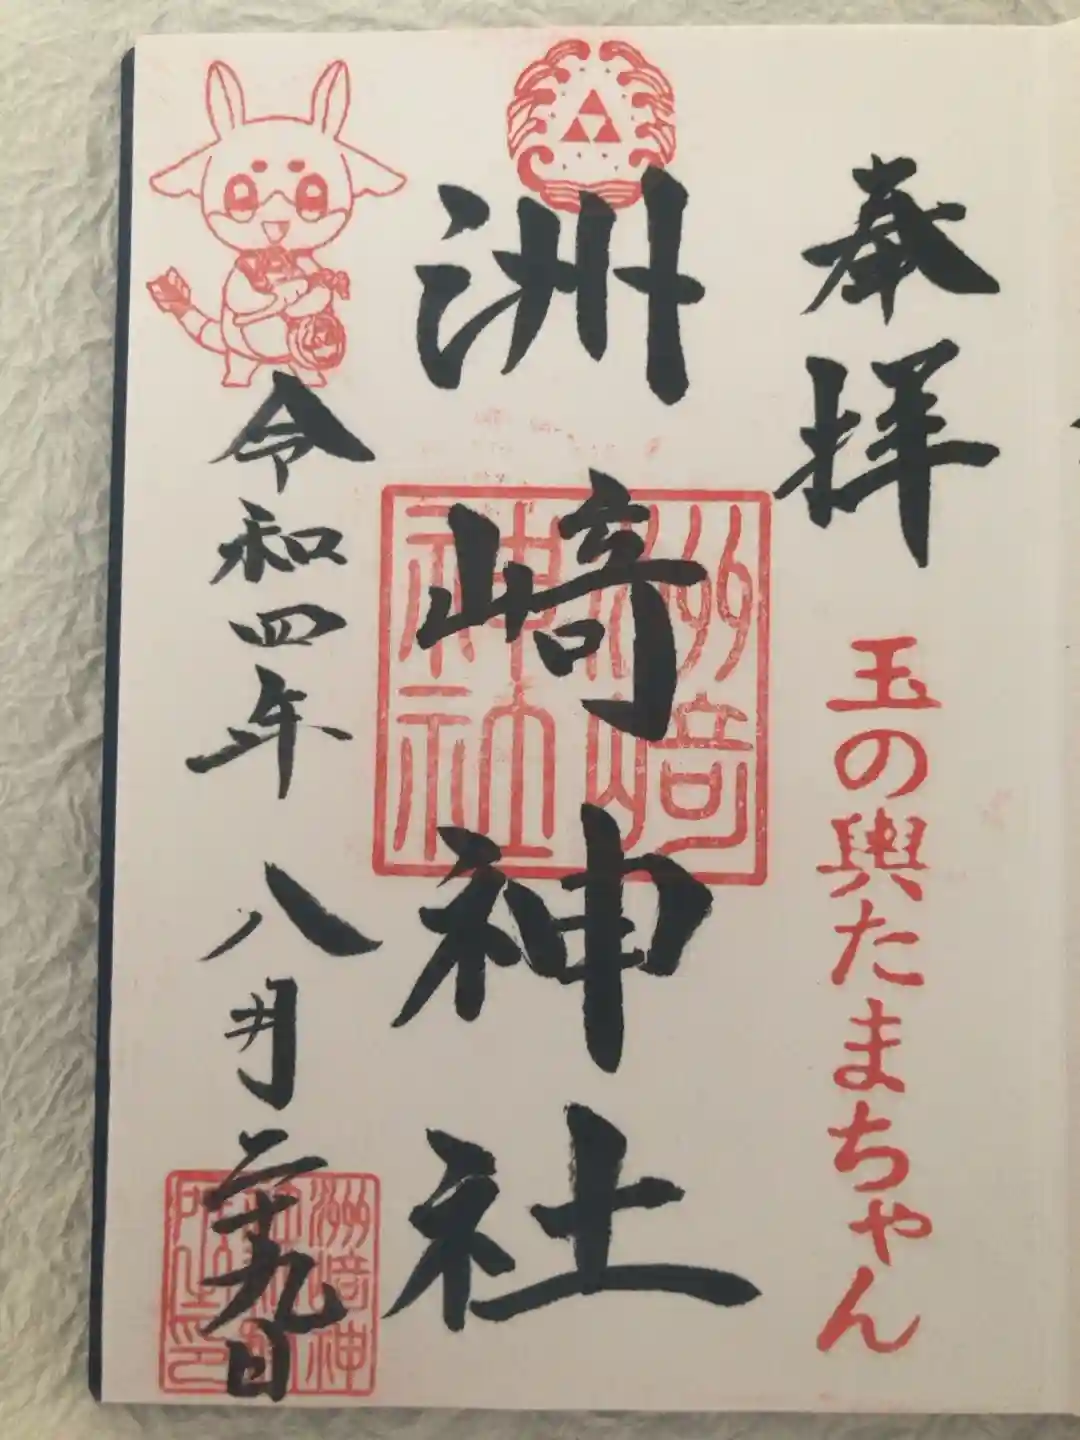 奉拝
玉の輿たまちゃん
洲崎神社
洲崎
神社
令和四年八月二十九日